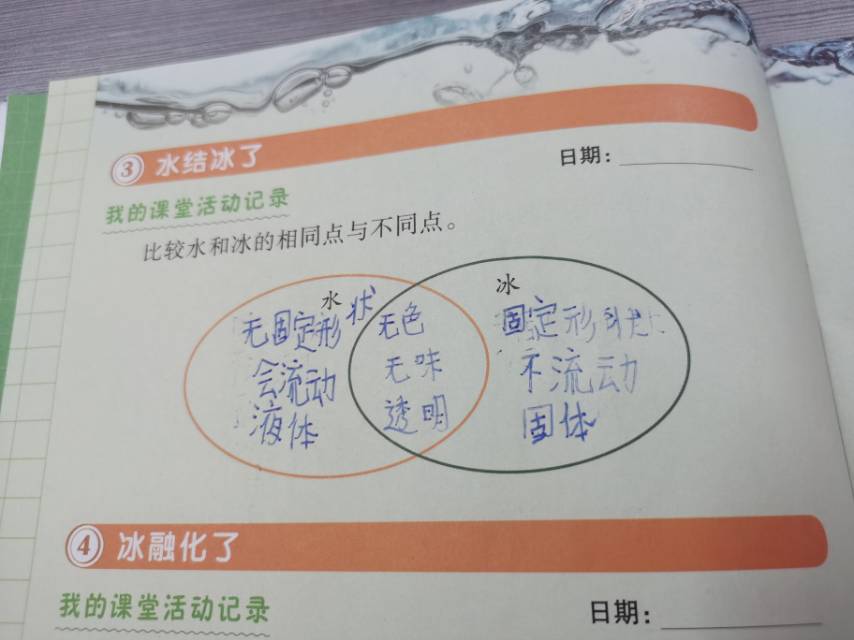 ③ 水结冰了
日期：
我的课堂活动记录
比较水和冰的相同点与不同点。
水
无固定形状
会流动
液体
无色
无味
透明
冰
固定形状
不流动
固体
④ 冰融化了
我的课堂活动记录
日期：